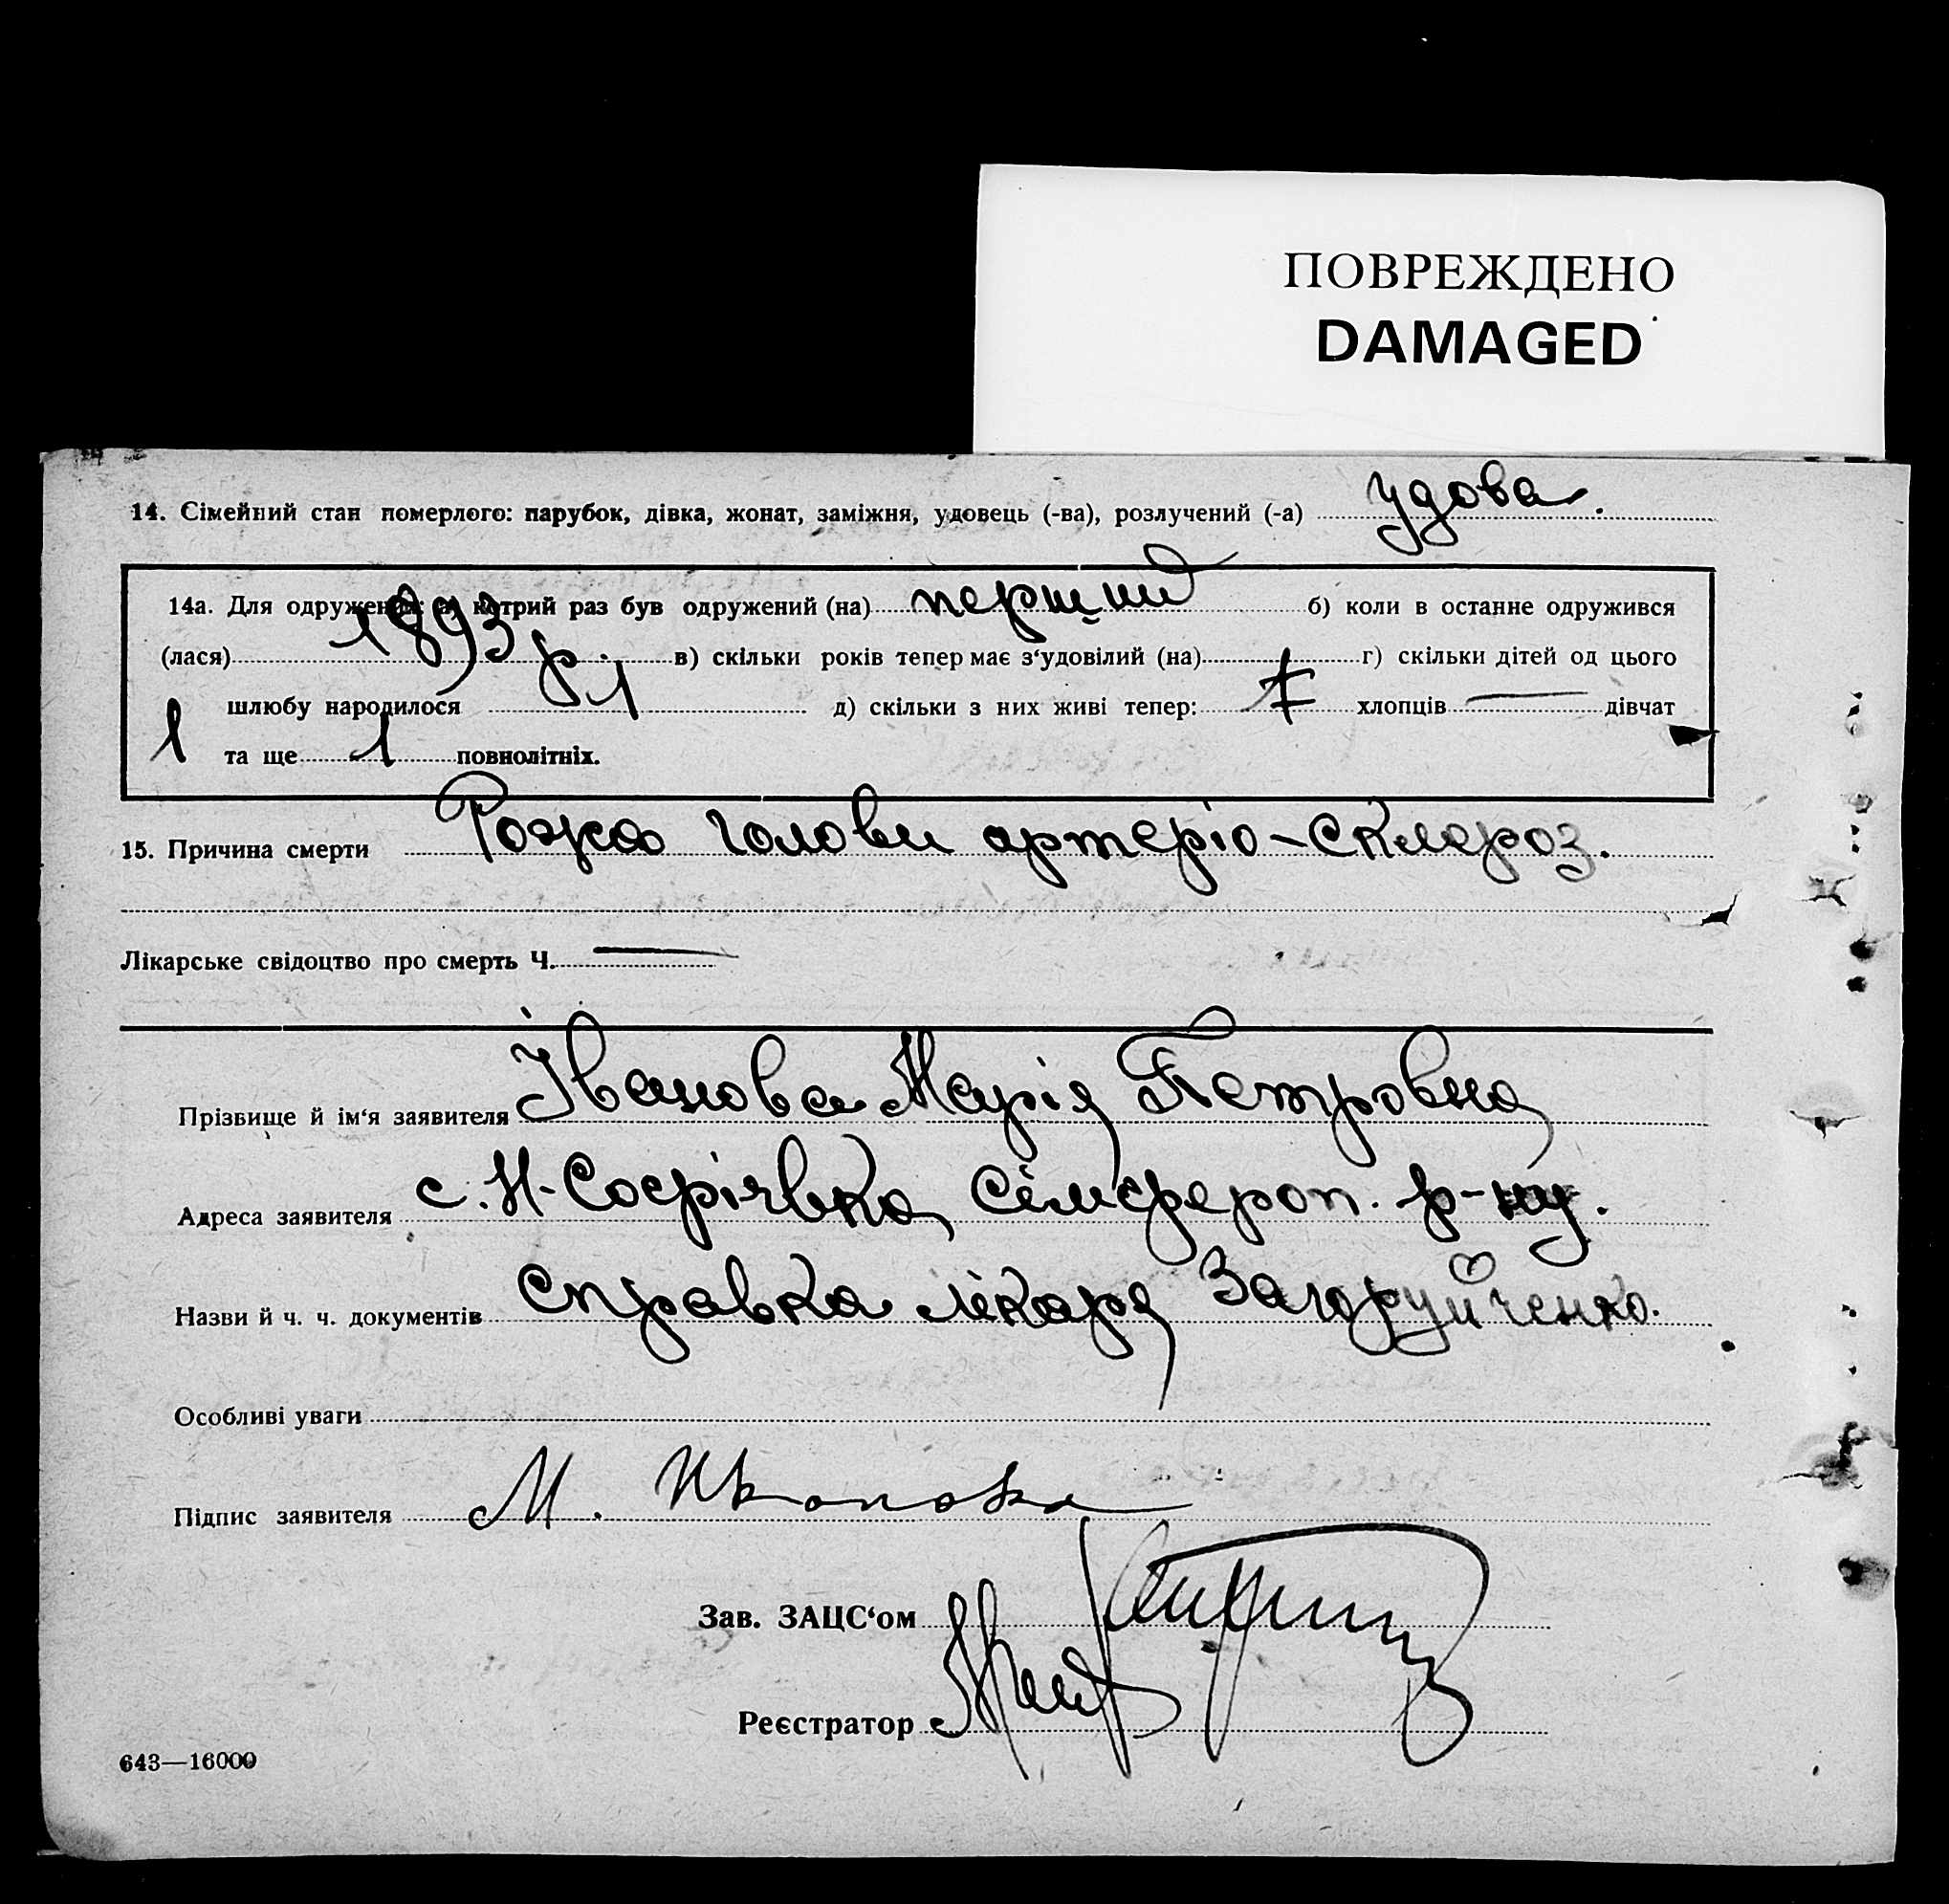 ПОВРЕЖДЕНО
DAMAGED
14. Сімейний стан померлого: парубок, дівка, жонат, заміжня, удовець (-ва), розлучений (-а) удова.
14а. Для одружених: а) котрий раз був одружений (на) перший б) коли в останнє одружився
(лася) 1893 р. в) скільки років тепер має з‘удовілий (на) г) скільки дітей од цього
шлюбу народилося 1 д) скільки з них живі тепер: хлопців — дівчат
1 та ще 1 повнолітніх.
15. Причина смерти Рожа голови артеріо-склероз.
Лікарське свідоцтво про смерть Ч. —
Прізвище й ім‘я заявителя Іванова Марія Петровна
Адреса заявителя с. Н-Софіівка Сімфероп. р-ну.
Назви й ч. ч. документів Справка лікаря Загоруйченко.
Особливі уваги
Підпис заявителя М.
Зав. ЗАЦС‘ом
Реєстратор
643—16000